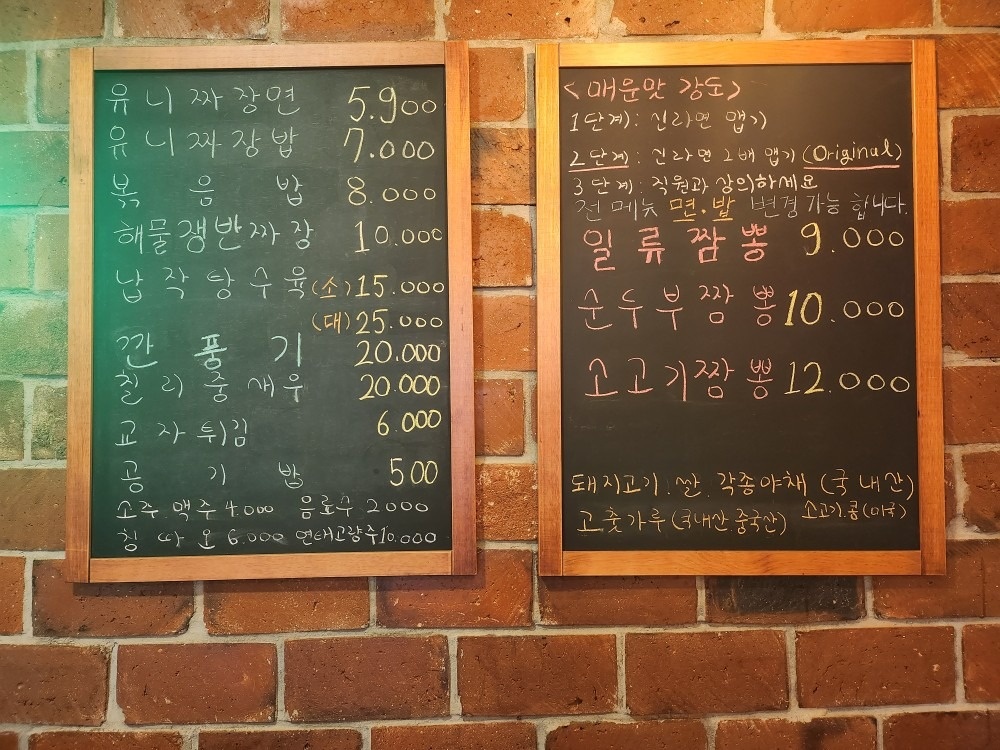 유니짜장면 5.900
유니짜장밥 7.000
볶음밥 8.000
해물쟁반짜장 10.000
납작탕수육(소)15.000
(대)25.000
깐풍기 20.000
칠리중새우 20.000
교자튀김 6.000
공기밥 500
소주.맥주4.000 음료수 2000
칭따오 6.000 연태고량주10.000
<매운맛 강도>
1단계: 신라면 맵기
2단계: 신라면 2배 맵기 (Original)
3단계: 직원과 상의하세요
전메뉴 면·밥 변경가능 합니다.
일류짬뽕 9.000
순두부짬뽕 10.000
소고기짬뽕 12.000
돼지고기.쌀.각종야채 (국내산)
고춧가루 (국내산 중국산) 소고기.콩(미국)